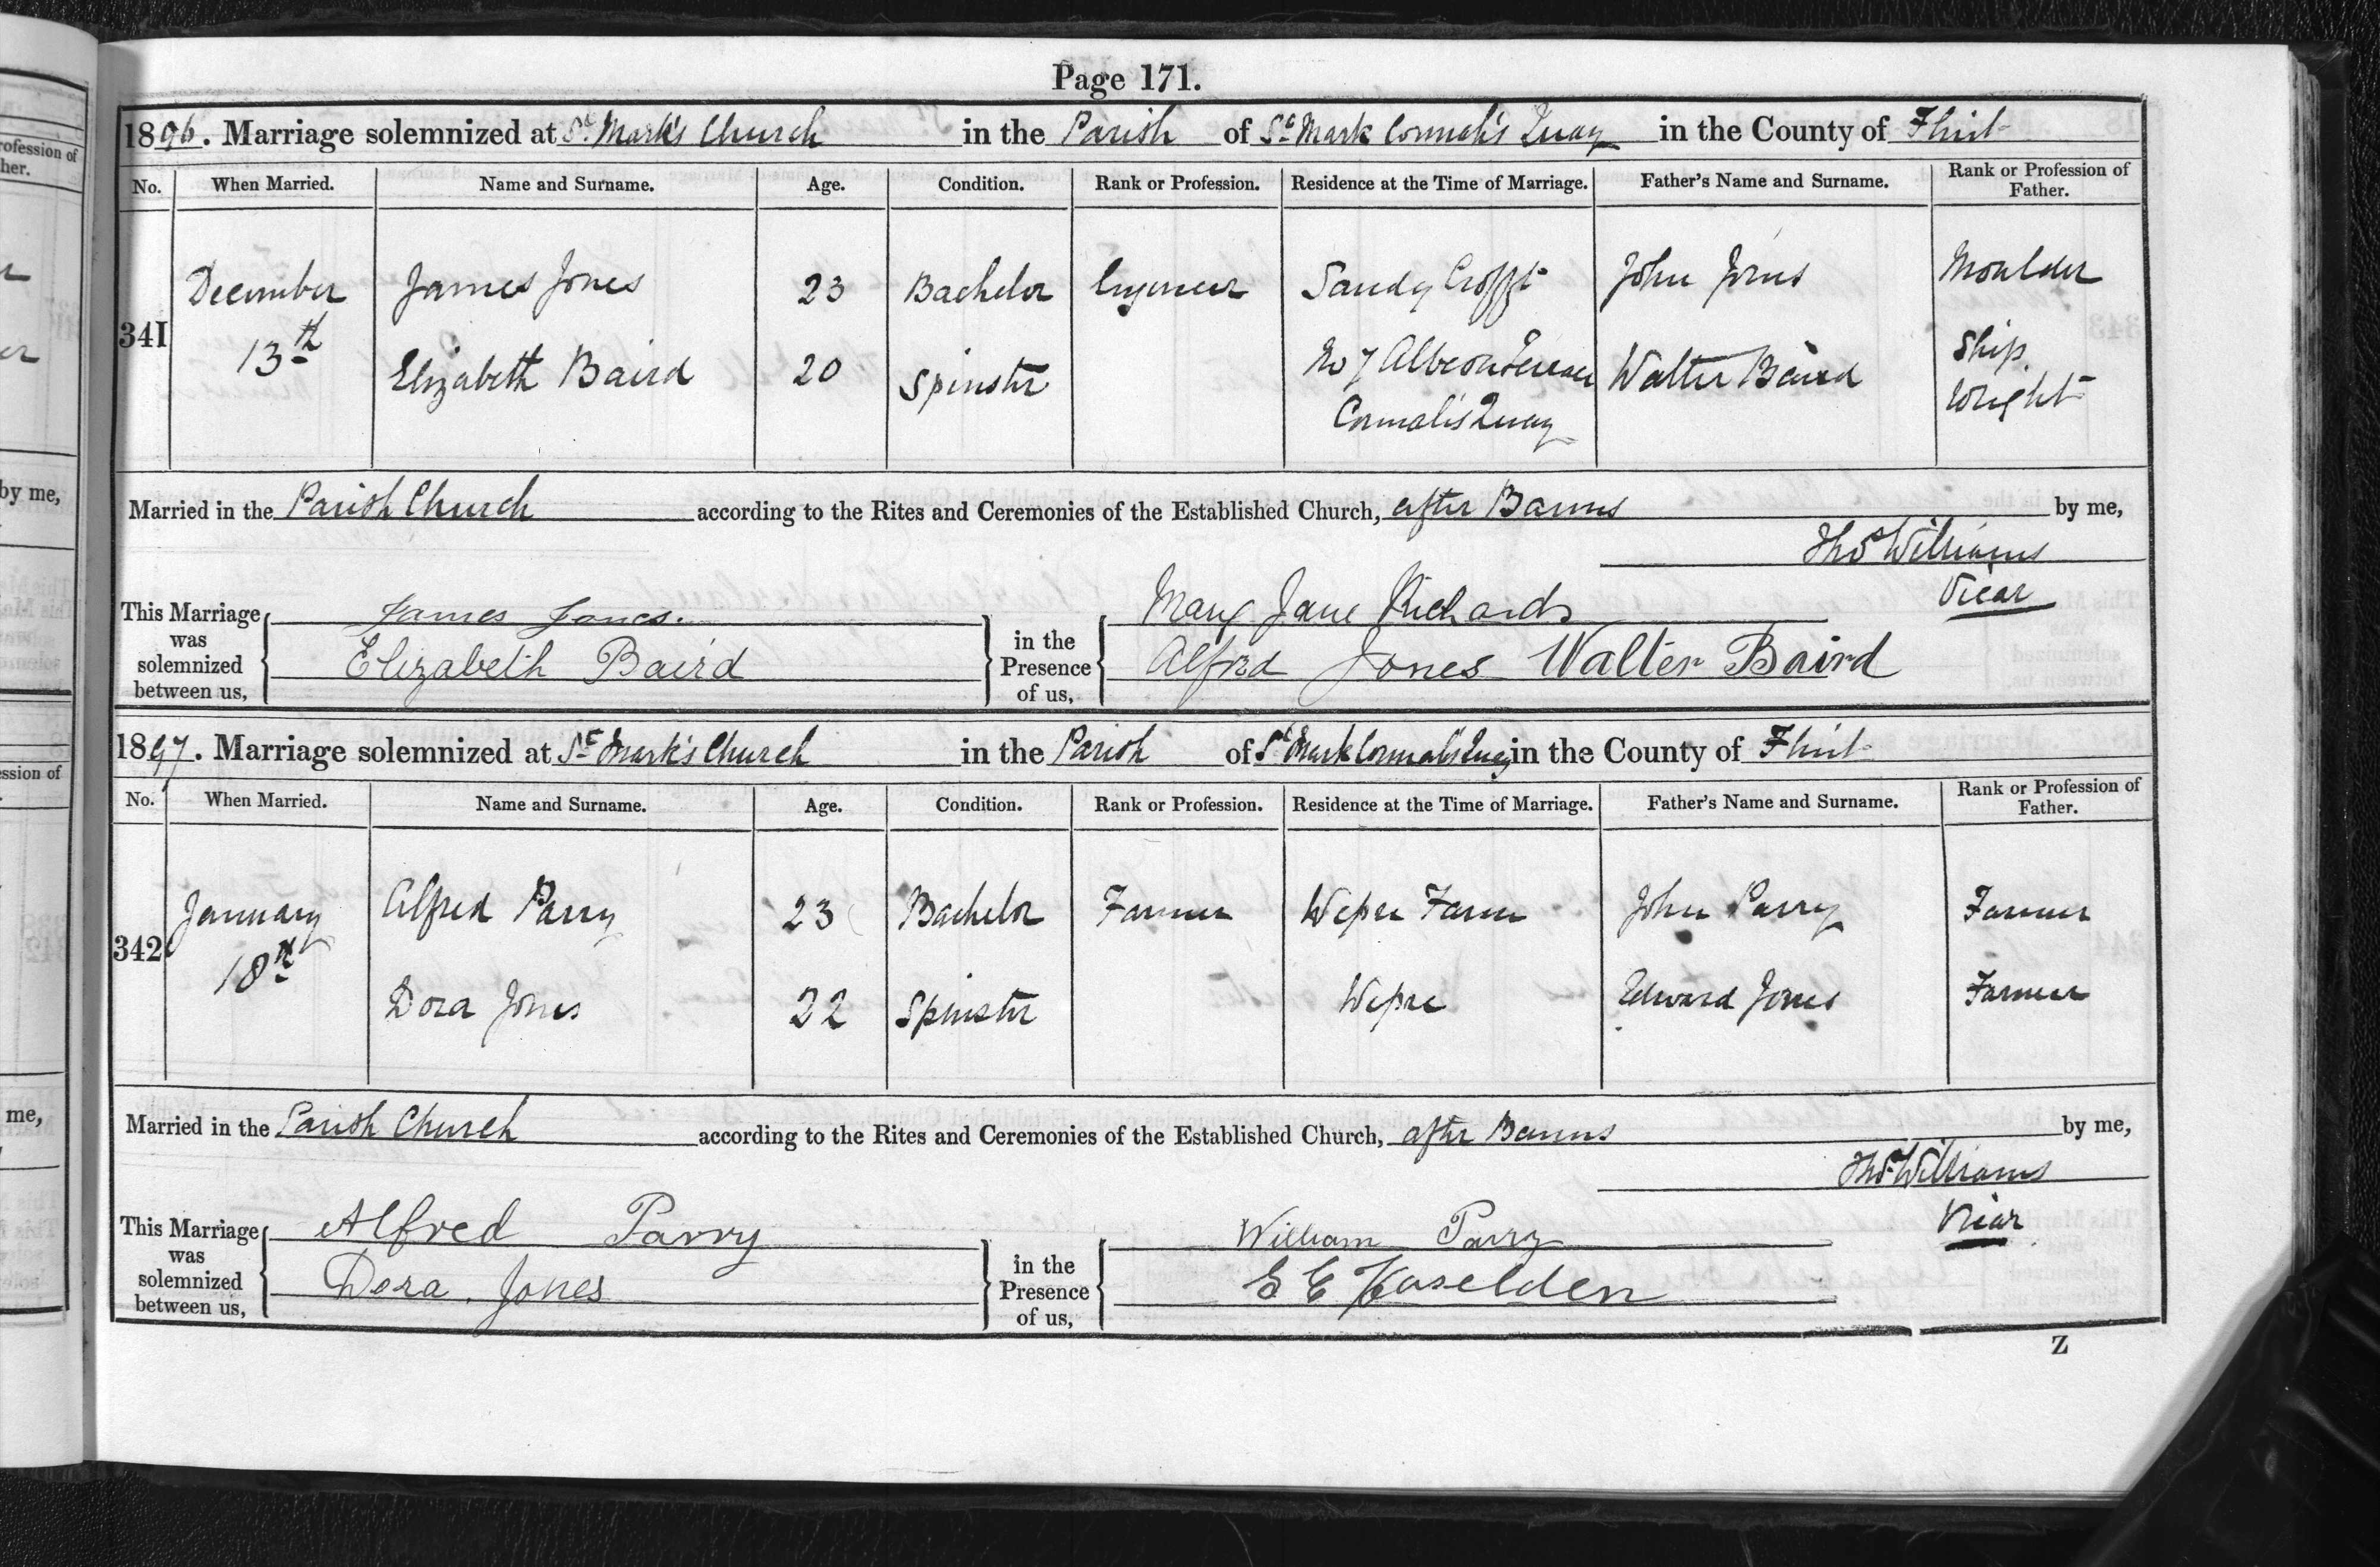 Page 171.
1896. Marriage solemnized at St Mark's Church in the Parish of St Mark Connah's Quay in the County of Flint
No. When Married. Name and Surname. Age. Condition. Rank or Profession. Residence at the Time of Marriage. Father's Name and Surname. Rank or Profession of Father.
341 December 13th James Jones 23 Bachelor Engineer Sandy Croft John Jones Moulder
Elizabeth Baird 20 Spinster No 7 Albion Terrace Connah's Quay Walter Baird Ship Wright
Married in the Parish Church according to the Rites and Ceremonies of the Established Church, after Banns by me,
Thos Williams
Vicar
This Marriage was solemnized between us, James Jones. Elizabeth Baird in the Presence of us, Mary Jane Richards Alfred Jones Walter Baird
1897. Marriage solemnized at St Mark's Church in the Parish of St Mark Connah's Quay in the County of Flint
No. When Married. Name and Surname. Age. Condition. Rank or Profession. Residence at the Time of Marriage. Father's Name and Surname. Rank or Profession of Father.
342 January 18th Alfred Parry 23 Bachelor Farmer Wepre Farm John Parry Farmer
Dora Jones 22 Spinster Wepre Edward Jones Farmer
Married in the Parish Church according to the Rites and Ceremonies of the Established Church, after Banns by me,
Thos Williams
Vicar
This Marriage was solemnized between us, Alfred Parry Dora Jones in the Presence of us, William Parry Haselden
Z